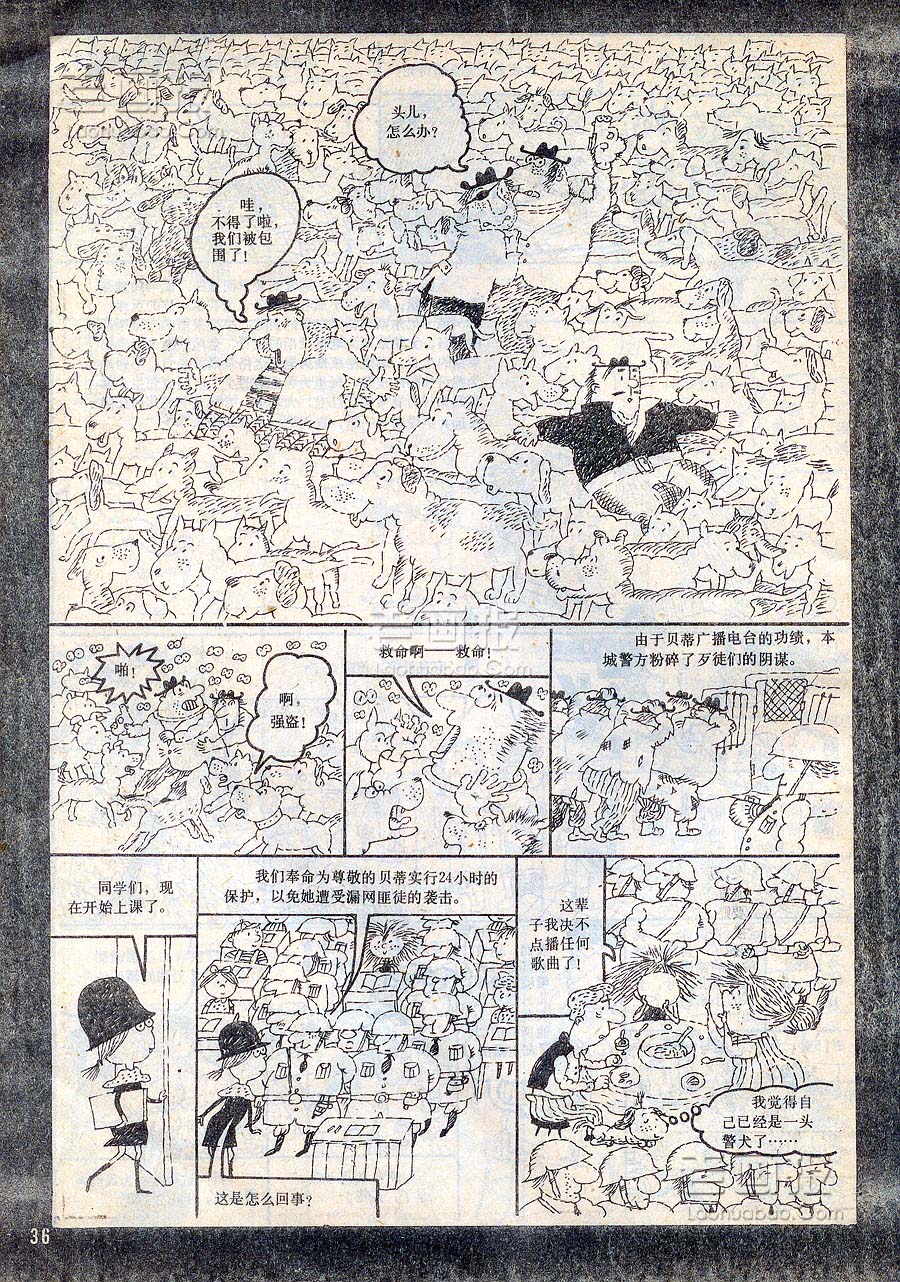 老画报
Laohuabao.com
头儿，
怎么办？
哇，
不得了啦，
我们被包
围了！
老画报
Laohuabao.com
啪！
啊，
强盗！
救命啊——救命！
由于贝蒂广播电台的功绩，本
城警方粉碎了歹徒们的阴谋。
同学们，现
在开始上课了。
我们奉命为尊敬的贝蒂实行24小时的
保护，以免她遭受漏网匪徒的袭击。
这是怎么回事？
这辈
子我决不
点播任何
歌曲了！
我觉得自
己已经是一头
警犬了……
老画报
Laohuabao.com
36